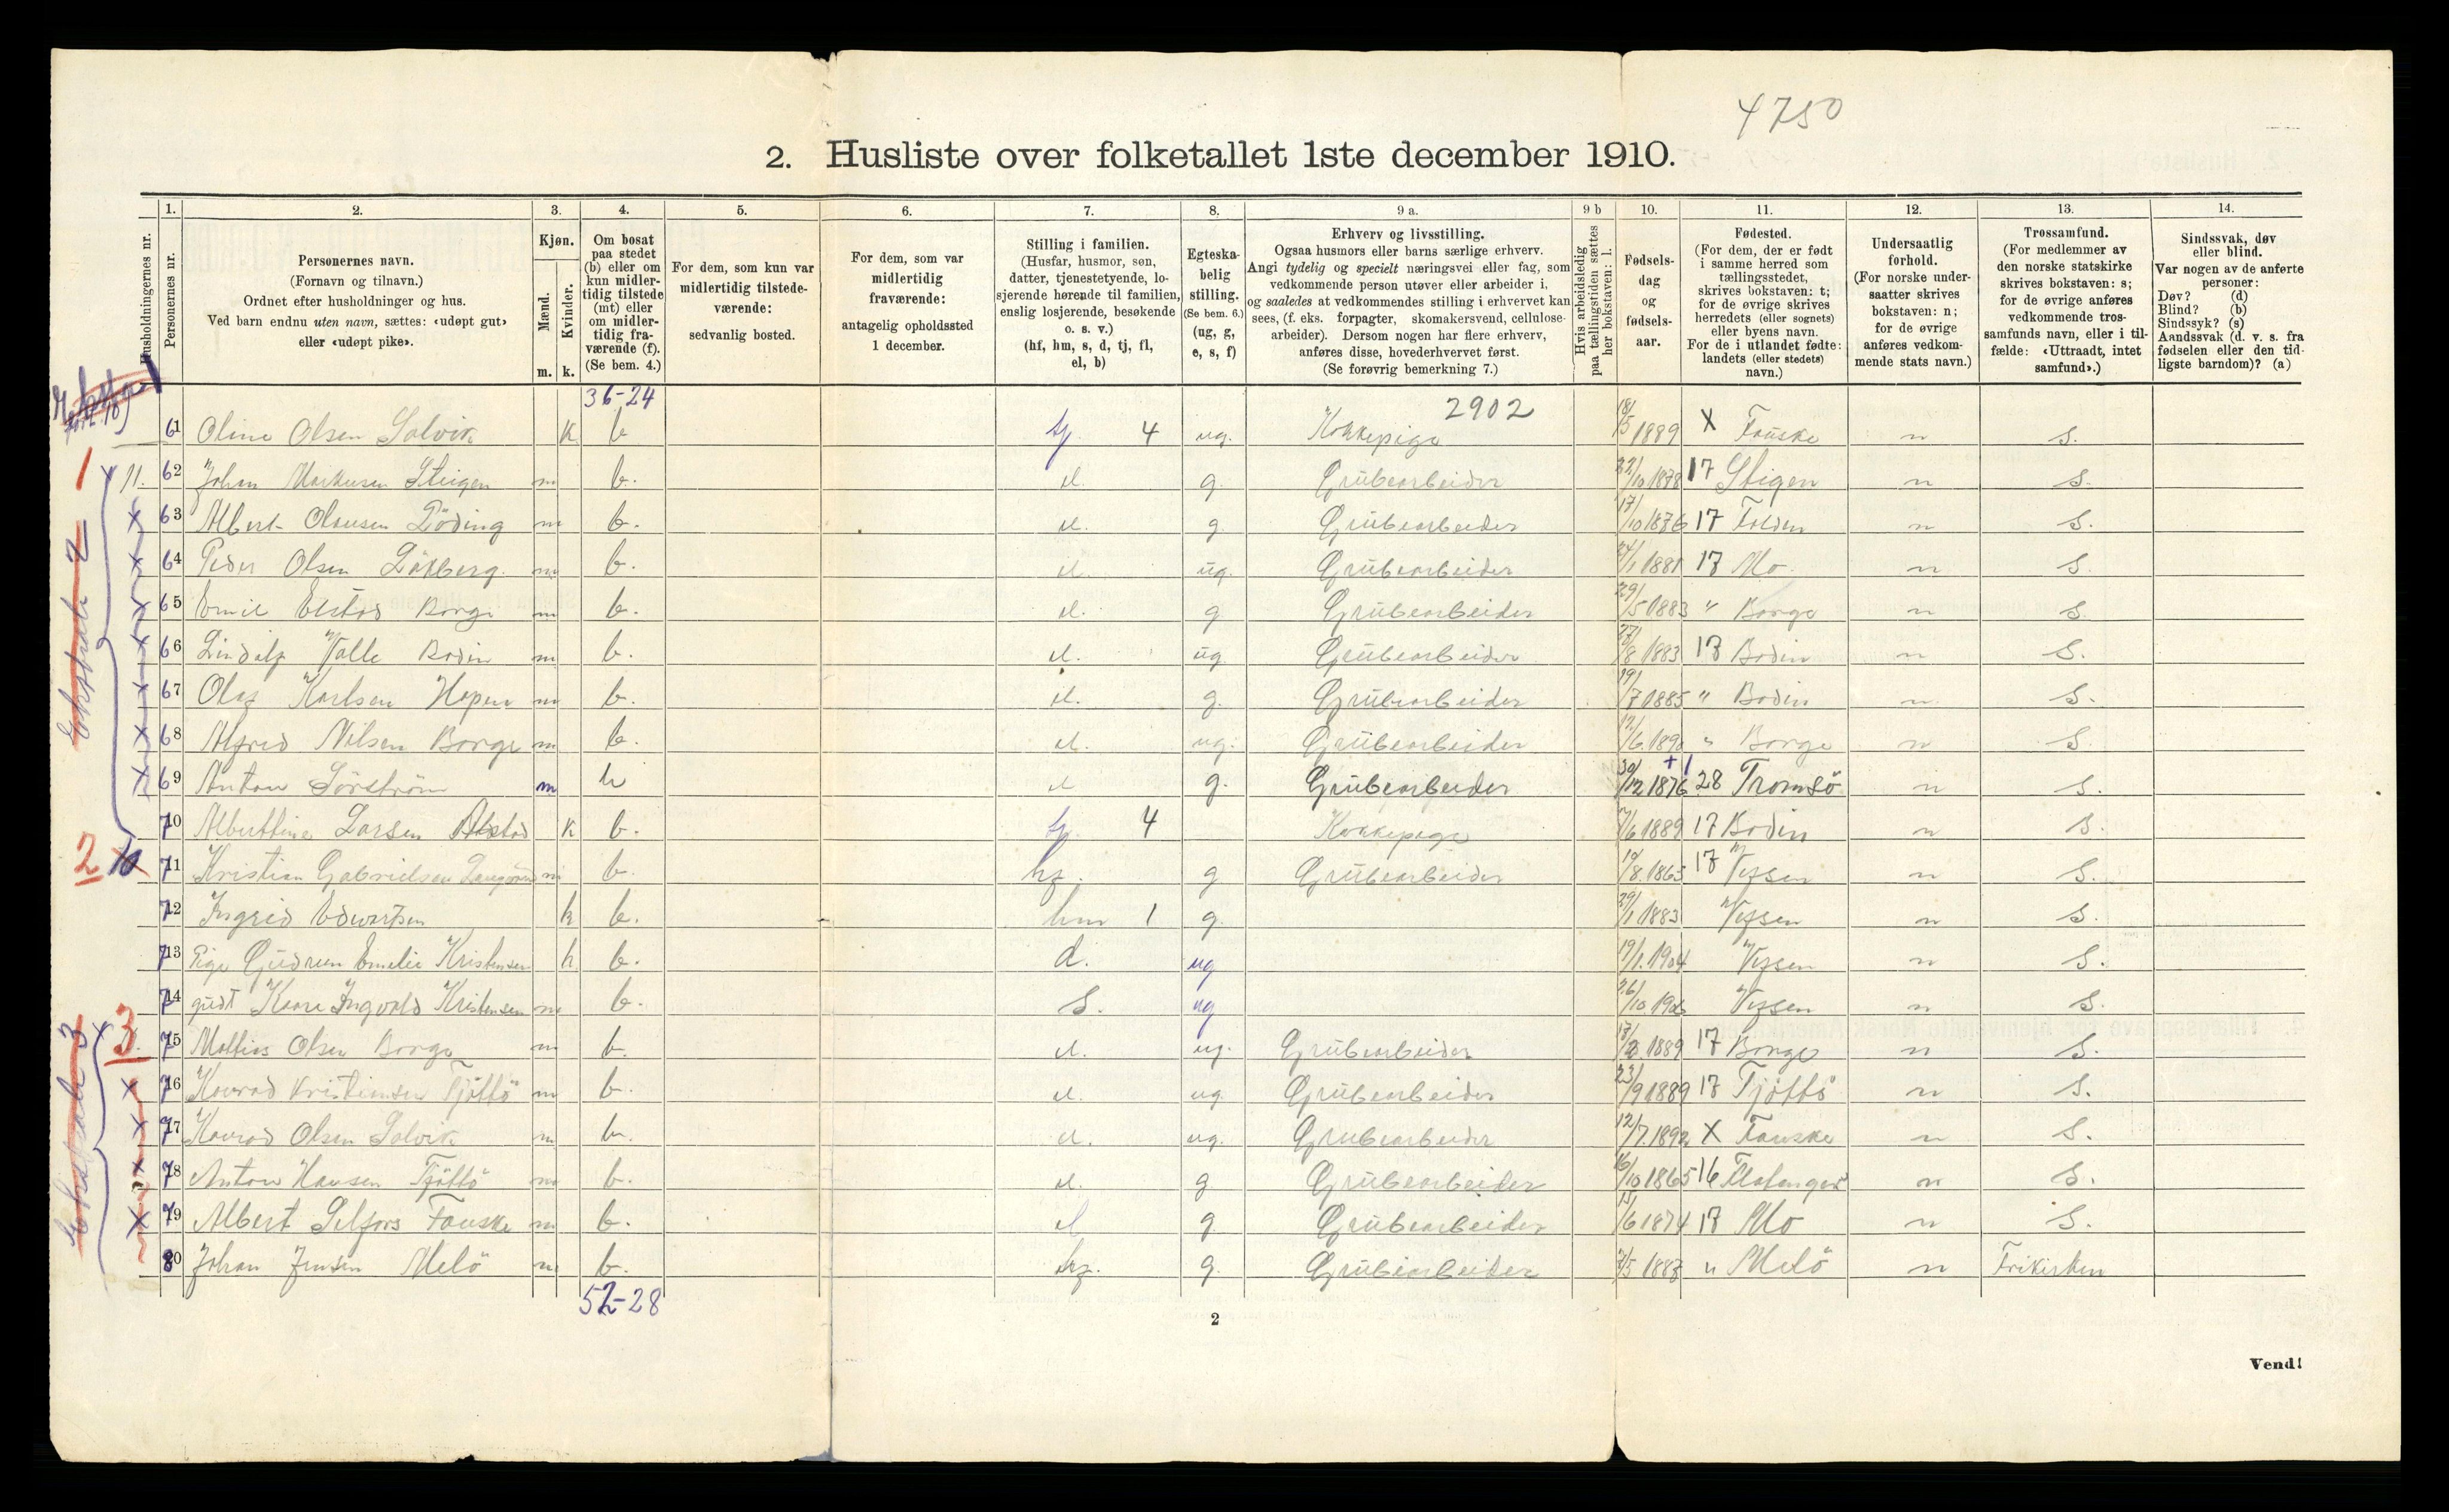 4750
2. Husliste over folketallet 1ste december 1910.
Husholdningernes nr.
1. Personernes nr.
2. Personernes navn.
(Fornavn og tilnavn.)
Ordnet efter husholdninger og hus.
Ved barn endnu uten navn, sættes: «udøpt gut»
eller «udøpt pike».
3. Kjøn.
Mænd. m.
Kvinder. k.
4. Om bosat
paa stedet
(b) eller om
kun midler-
tidig tilstede
(mt) eller
om midler-
tidig fra-
værende (f).
(Se bem. 4.)
5. For dem, som kun var
midlertidig tilstede-
værende:
sedvanlig bosted.
6. For dem, som var
midlertidig
fraværende:
antagelig opholdssted
1 december.
7. Stilling i familien.
(Husfar, husmor, søn,
datter, tjenestetyende, lo-
sjerende hørende til familien,
enslig losjerende, besøkende
o. s. v.)
(hf, hm, s, d, tj, fl,
el, b)
8. Egteska-
belig
stilling.
(Se bem. 6.)
(ug, g,
e, s, f)
9 a. Erhverv og livsstilling.
Ogsaa husmors eller barns særlige erhverv.
Angi tydelig og specielt næringsvei eller fag, som
vedkommende person utøver eller arbeider i,
og saaledes at vedkommendes stilling i erhvervet kan
sees, (f. eks. forpagter, skomakersvend, cellulose-
arbeider). Dersom nogen har flere erhverv,
anføres disse, hovederhvervet først.
(Se forøvrig bemerkning 7.)
9 b Hvis arbeidsledig
paa tællingstiden sættes
her bokstaven: l.
10. Fødsels-
dag
og
fødsels-
aar.
11. Fødested.
(For dem, der er født
i samme herred som
tællingsstedet,
skrives bokstaven: t;
for de øvrige skrives
herredets (eller sognets)
eller byens navn.
For de i utlandet fødte:
landets (eller stedets)
navn.)
12. Undersaatlig
forhold.
(For norske under-
saatter skrives
bokstaven: n;
for de øvrige
anføres vedkom-
mende stats navn.)
13. Trossamfund.
(For medlemmer av
den norske statskirke
skrives bokstaven: s;
for de øvrige anføres
vedkommende tros-
samfunds navn, eller i til-
fælde: «Uttraadt, intet
samfund».)
14. Sindssvak, døv
eller blind.
Var nogen av de anførte
personer:
Døv? (d)
Blind? (b)
Sindssyk? (s)
Aandssvak (d. v. s. fra
fødselen eller den tid-
ligste barndom)? (a)
36-24 2902
61 Oline Olsen Solvik k b tj. 4 ug. Kokkepige 18/5 1889 X Fauske n s.
1 11. 62 Johan Markusen Steigen m b. el. g. Grubearbeider 22/10 1878 17 Stigen n s.
63 Albert Olausen Löding m b. el. g. Grubearbeider 17/10 1876 17 Folden n s.
64 Peder Olsen m b. el. ug. Grubearbeider 24/1 1881 17 Mo n s.
65 Emil Borge m b. el. g. Grubearbeider 29/5 1883 " Borge n s
66 Valle Bodin m b. el. ug. Grubearbeider 1883 17 Bodin n s.
67 Olaf Karlsen Hopen m b. el. g. Grubearbeider 19/7 1885 " Bodin n s.
68 Alfred Nilsen Borge m b. el. ug. Grubearbeider 12/6 1890 " Borge n s.
69 Anton Sörström m b el g. Grubearbeider 30/12 1876 28 Tromsö n s.
70 Alberttine Larsen k b. tj. 4 Kokkepige 1889 17 Bodin n s.
2 71 Kristian Gabrielsen m b. hf. g Grubearbeider 1865 17 Vefsen n s.
72 Ingrid Edvartsen k b. hm 1 g. 29/1 1883 Vefsen n s.
73 Pige Gudrun Emelie Kristensen k b. d. ug 19/1. 1904 Vefsen n s.
74 gudt Kaare Ingvald Kristensen m b. s. ug 26/10 Vefsen n s.
3 75 Mattias Olsen Borge m b. el. ug. Grubearbeider 1889 17 Borge n s.
76 Konrad Kristiansen Tjöttö m b. el. ug. Grubearbeider 23/9 1889 17 Tjöttö n s.
77 Konrad Olsen Solvik m b. el. ug. Grubearbeider 12/7. 1892 X Fauske n s.
78 Anton Hansen Tjöttö m b. el. g Grubearbeider 16/10 1865 16 n s.
79 Albert Selfors Fauske m b. el g. Grubearbeider 1874 17 Mo n s.
80 Johan Jensen Melö m b. hf. g. Grubearbeider 1887 " Melö n Frikirken
52-28
2
Vend!